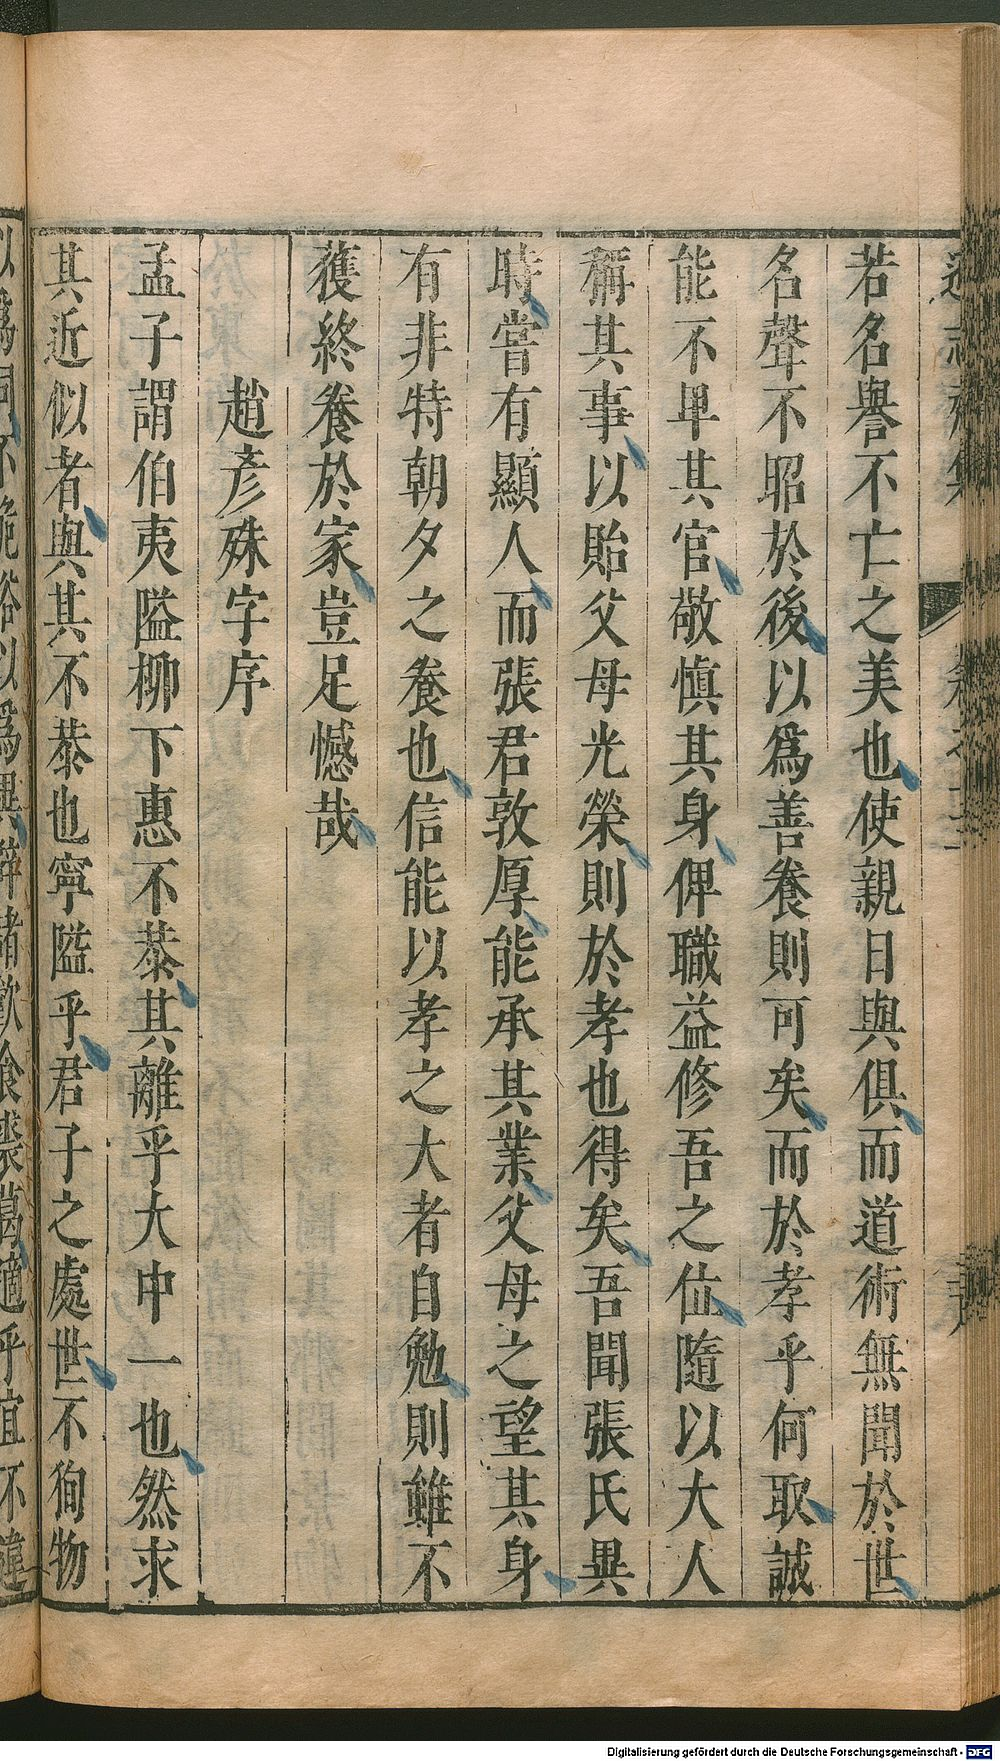 若名譽不亡之美也使親日與俱而道術無聞於世
名聲不昭於後以爲善養則可矣而於孝乎何取誠
能不卑其官敬慎其身俾職益修吾之位隨以大人
稱其事以貽父母光榮則於孝也得矣吾聞張氏異
時嘗有顯人而張君敦厚能承其業父母之望其身
有非特朝夕之養也信能以孝之大者自勉則雖不
獲終養於家豈足憾哉
趙彥殊字序
孟子謂伯夷隘柳下惠不恭其離乎大中一也然求
其近似者與其不恭也寧隘乎君子之處世不狥物
以爲同不詭俗以爲異辟諸飲食裘葛適乎宜不違
Digitalisierung gefördert durch die Deutsche Forschungsgemeinschaft - DFG